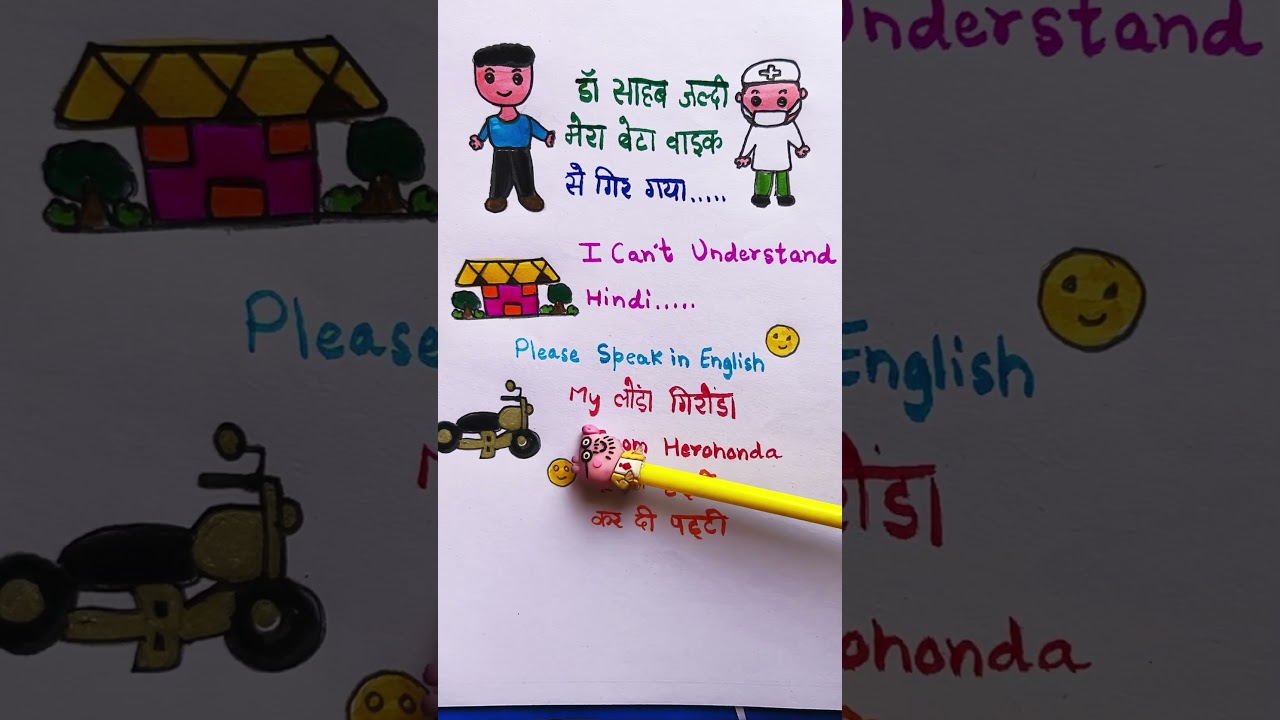 डॉ साहब जल्दी
मेरा बेटा बाइक
से गिर गया.....
I Can't Understand
Hindi.....
Please Speak in English
My लोंडा गिरोंडा
Herohonda
कर दी पट्टी